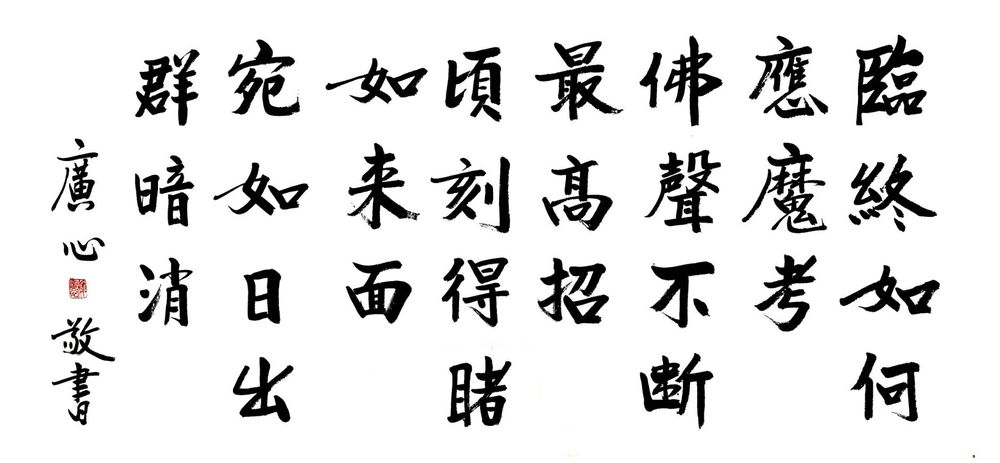 臨終如何
應魔考
佛聲不断
最髙招
頃刻得睹
如来面
宛如日出
群暗消
廣心
敬書